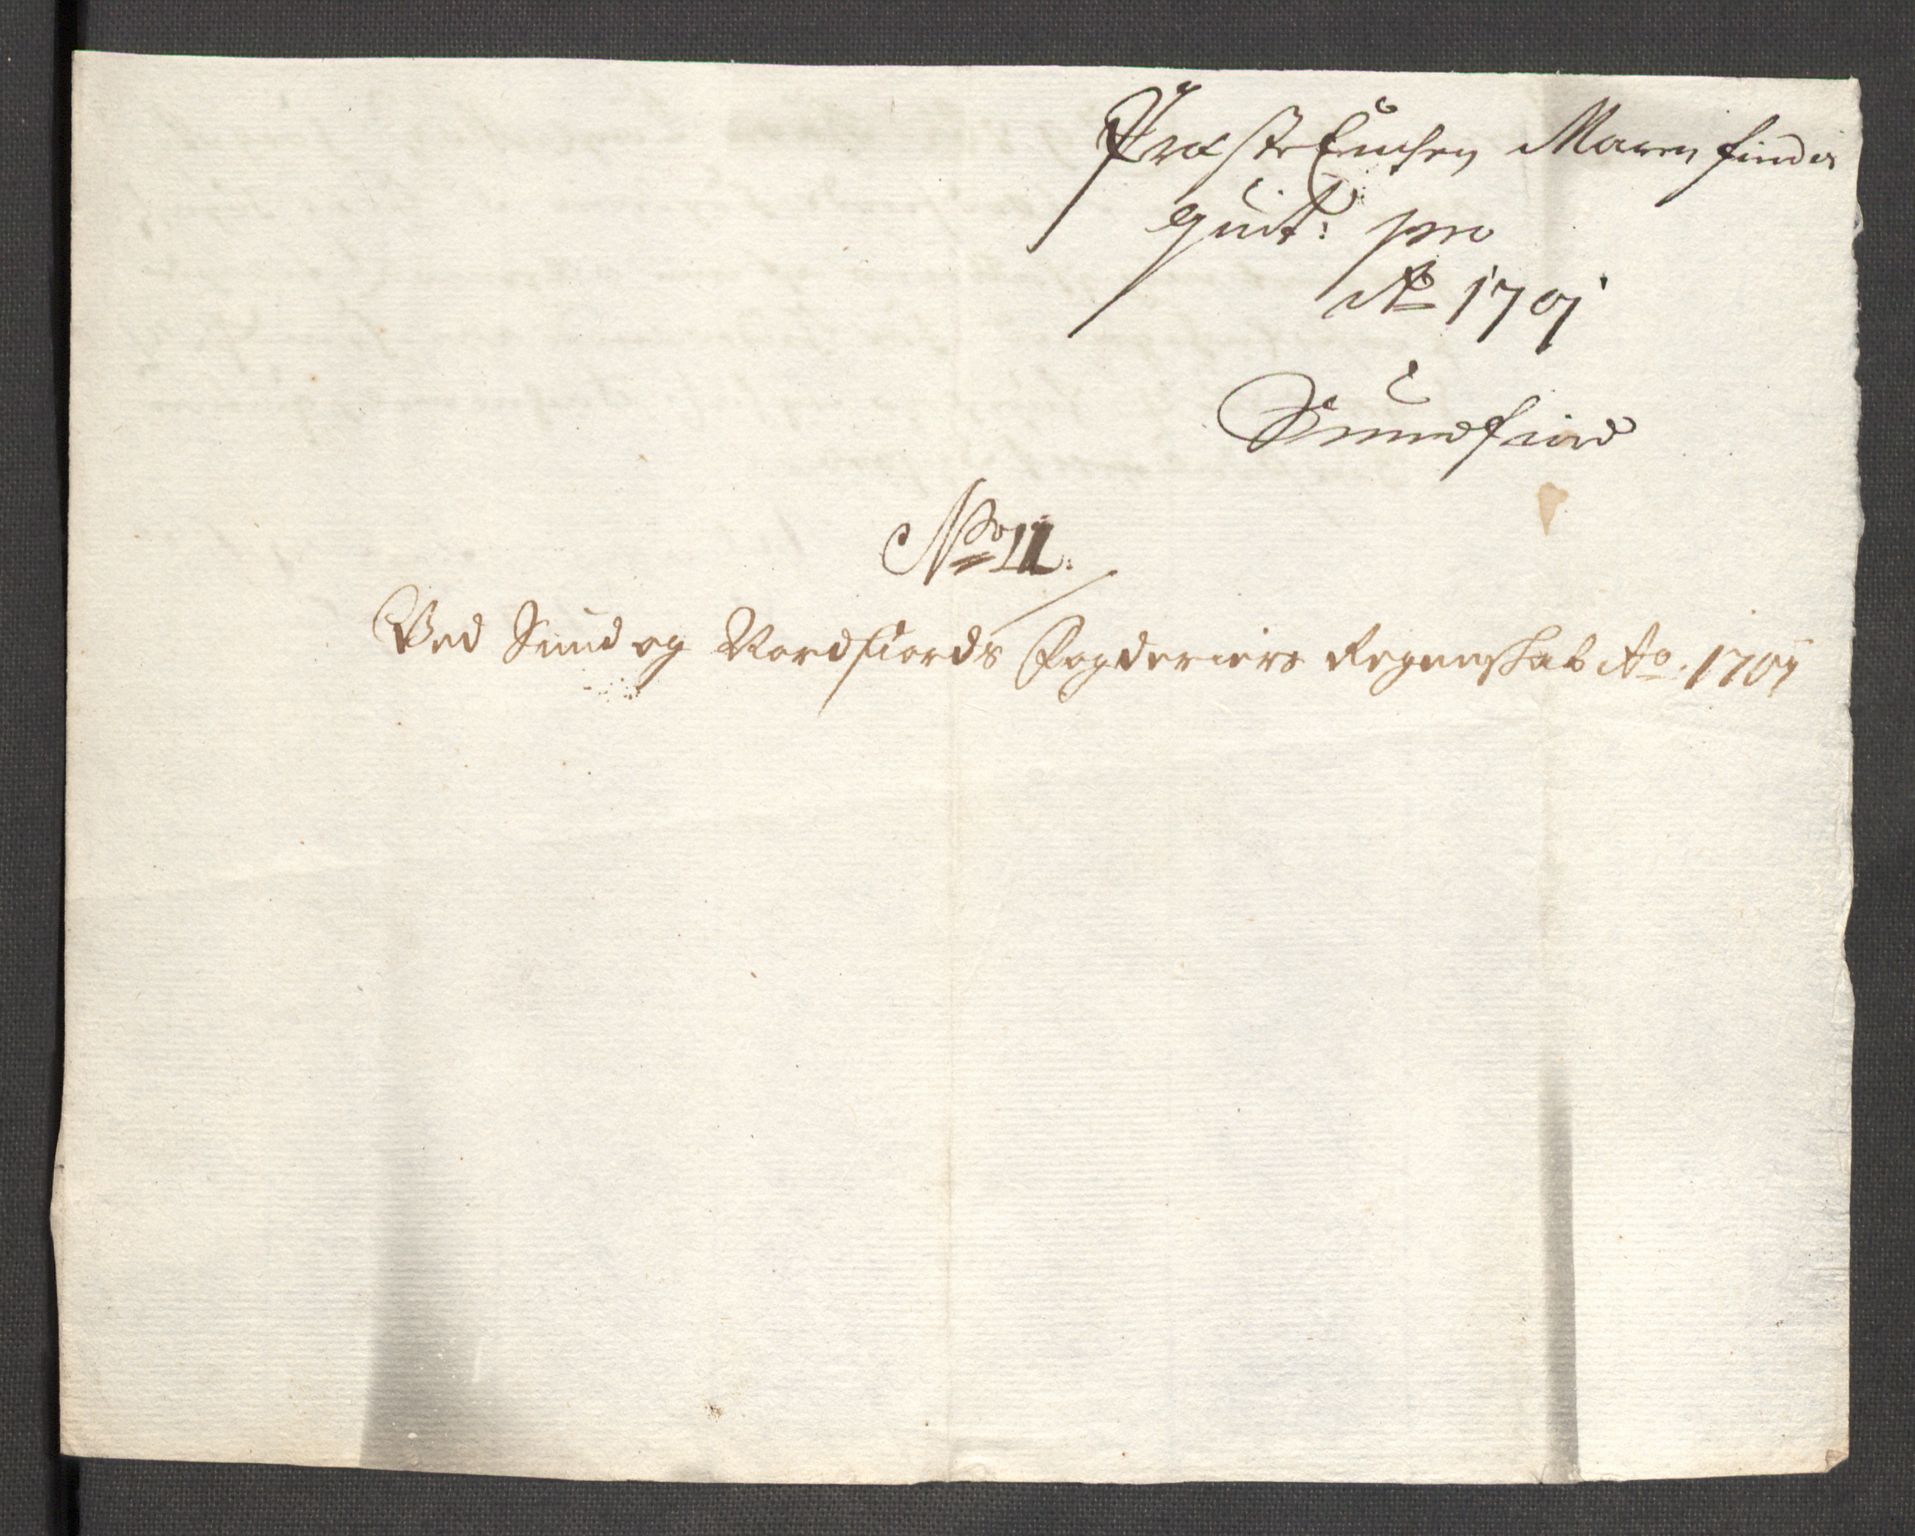 Præste Enchen Maren Findis
quit: pro
Ao 1701
Sundfiord
No 11.
Ved Sund og Nordfiords Fogderiers Regenskab Ao. 1701